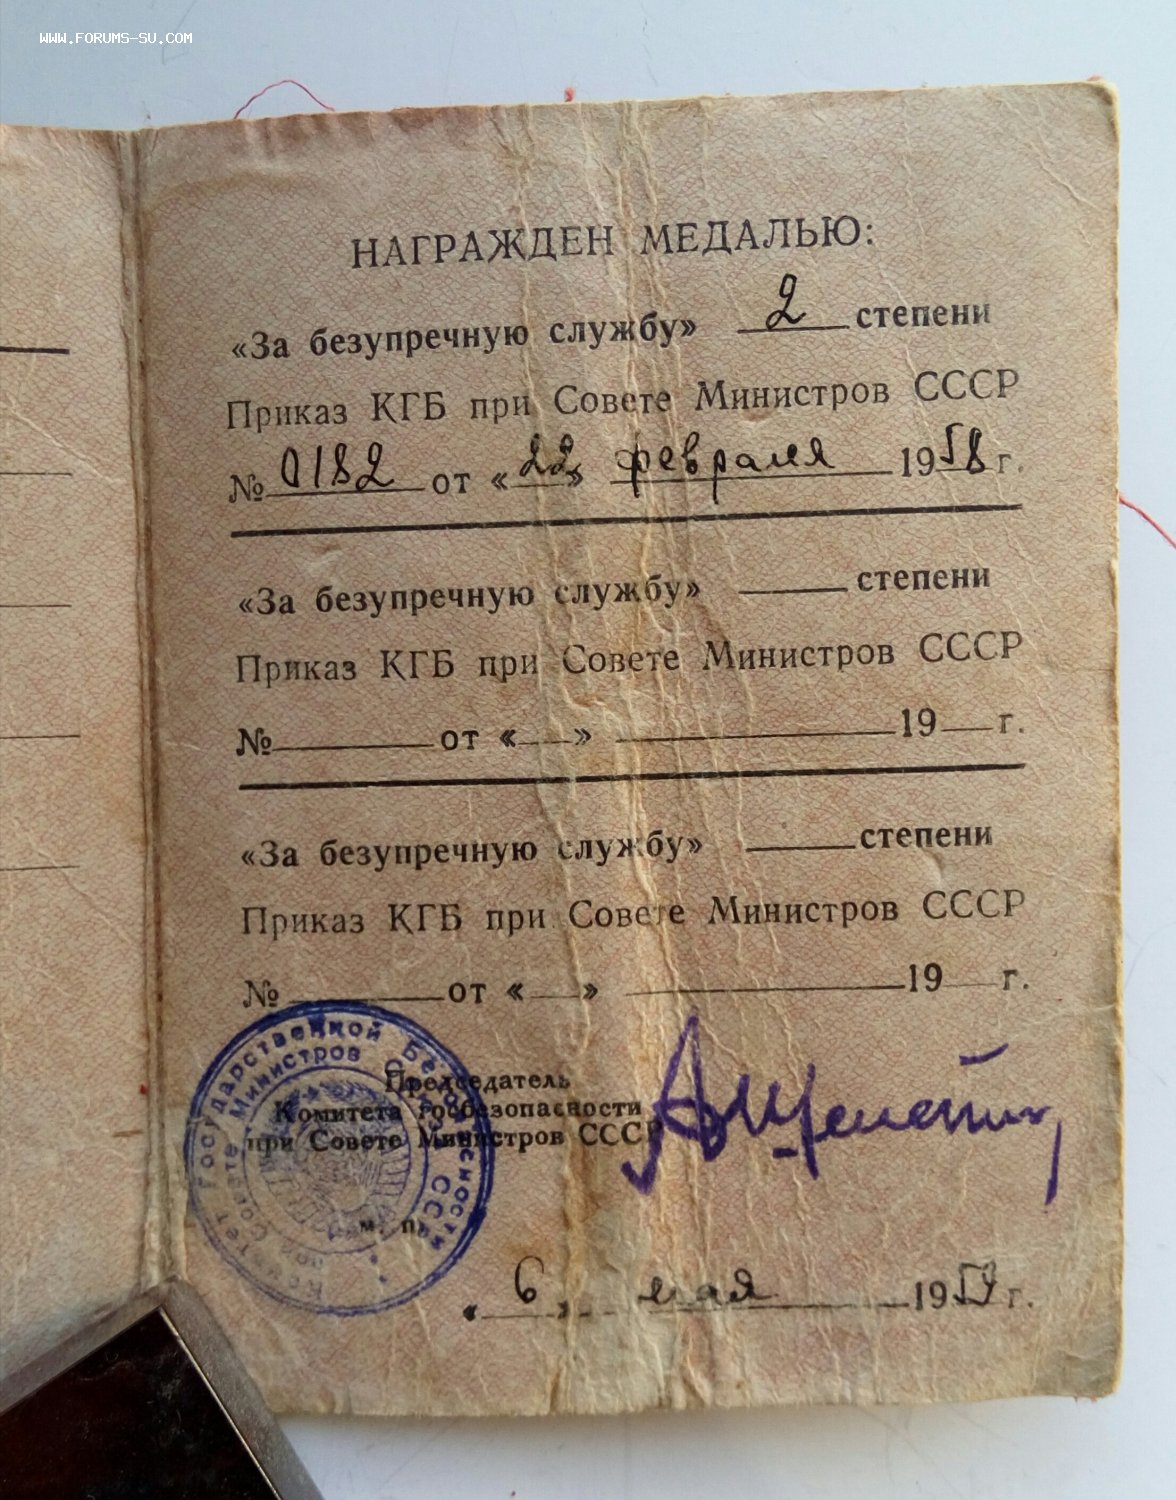 WWW.FORUMS-SU.COM
НАГРАЖДЕН МЕДАЛЬЮ:
«За безупречную службу» 2 степени
Приказ КГБ при Совете Министров СССР
№ 0182 от «22» февраля 1958 г.
«За безупречную службу» ____ степени
Приказ КГБ при Совете Министров СССР
№ ____ от «__» ____ 19__ г.
«За безупречную службу» ____ степени
Приказ КГБ при Совете Министров СССР
№ ____ от «__» ____ 19__ г.
Комитет Государственной Безопасности
при Совете Министров СССР
Председатель
Комитета госбезопасности
при Совете Министров СССР
м. п.
«6» мая 1959 г.